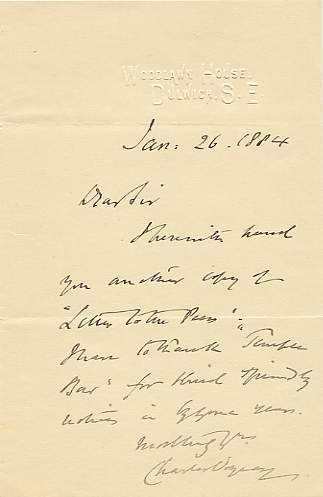 Woodlawn House,
Dulwich, S.E
Jan: 26. 1884
Dear Sir
I herewith hand
you another copy of
"Letter to the Pess":-
I have to thank Temple
Bar" for kind friendly
notices in bygone years.
Charles Voysey